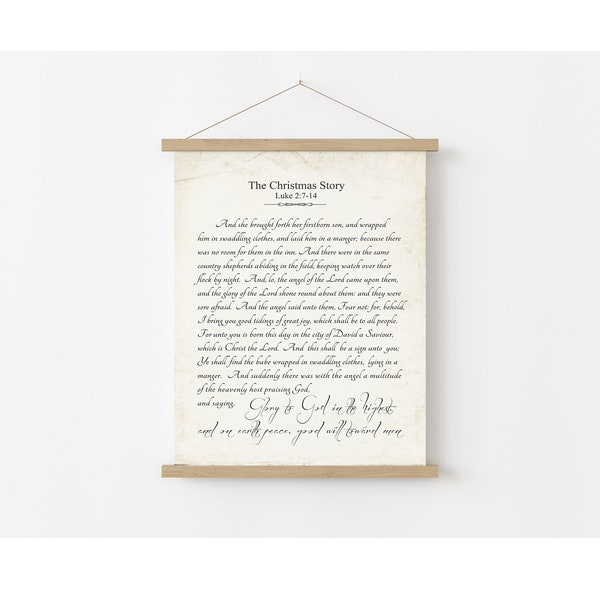 The Christmas Story
Luke 2:7-14
And she brought forth her firstborn son, and wrapped
him in swaddling clothes, and laid him in a manger; because there
was no room for them in the inn. And there were in the same
country shepherds abiding in the field, keeping watch over their
flock by night. And, lo, the angel of the Lord came upon them,
and the glory of the Lord shone round about them: and they were
sore afraid. And the angel said unto them, Fear not; for, behold,
I bring you good tidings of great joy, which shall be to all people.
For unto you is born this day in the city of David a Saviour,
which is Christ the Lord. And this shall be a sign unto you;
Ye shall find the babe wrapped in swaddling clothes, lying in a
manger. And suddenly there was with the angel a multitude
of the heavenly host praising God,
and saying, Glory to God in the highest
and on earth peace, good will toward men